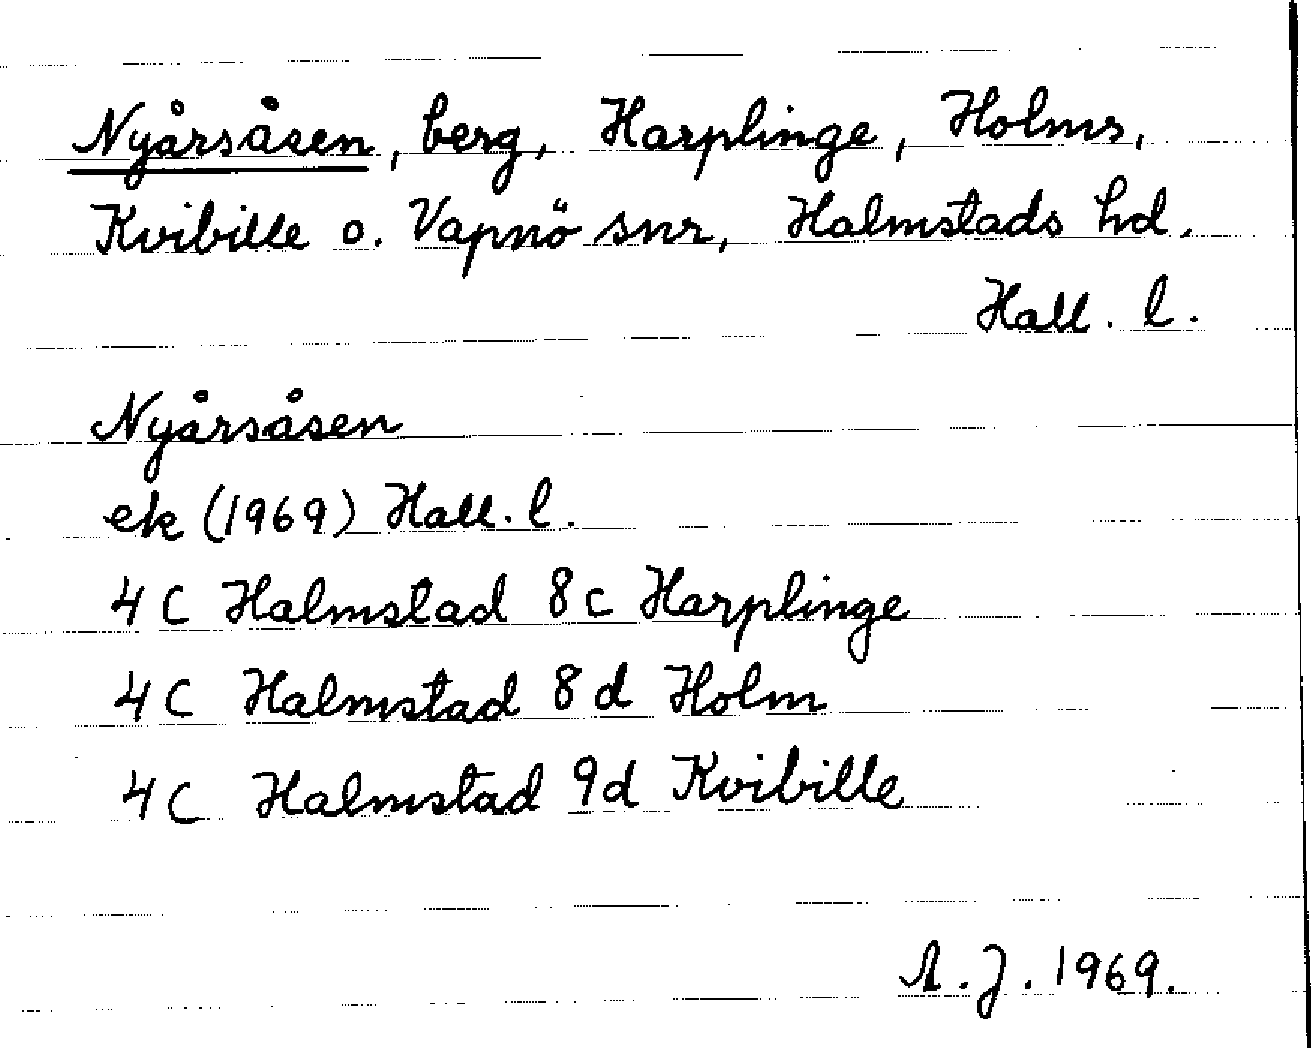 Nyårsåsen, berg, Harplinge, Holms,
Kvibille o. Vapnö snr, Halmstads hd.
Hall. l.
Nyårsåsen
ek (1969) Hall. l.
4C Halmstad 8c Harplinge
4C Halmstad 8d Holm
4C Halmstad 9d Kvibille
A. J. 1969.